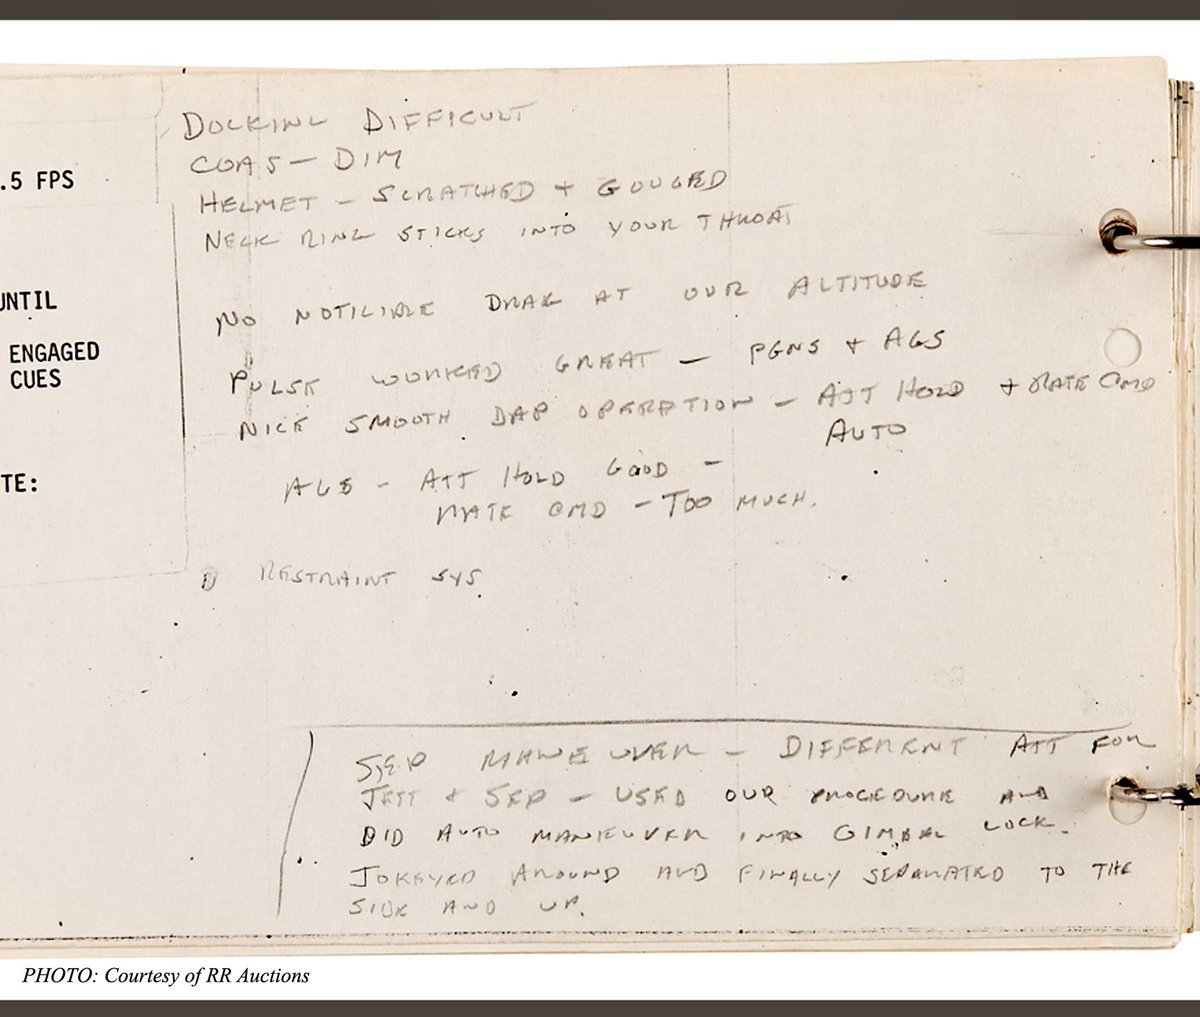 DOCKING DIFFICULT
COAS - DIM
HELMET - SCRATCHED + GOUGED
NECK RING STICKS INTO YOUR THROAT
NO NOTICIBLE DRAG AT OUR ALTITUDE
PULSE WORKED GREAT - PGNS + AGS
NICE SMOOTH DAP OPERATION - ATT HOLD + RATE CMD
AUTO
AGS - ATT HOLD GOOD -
RATE CMD - TOO MUCH.
RESTRAINT SYS.
SEP MANEUVER - DIFFERENT ATT FOR
JETT + SEP - USED OUR PROCEDURE AND
DID AUTO MANEUVER INTO GIMBAL LOCK.
JOKEYED AROUND AND FINALLY SEPARATED TO THE
SIDE AND UP.
.5 FPS
UNTIL
ENGAGED
CUES
TE:
PHOTO: Courtesy of RR Auctions